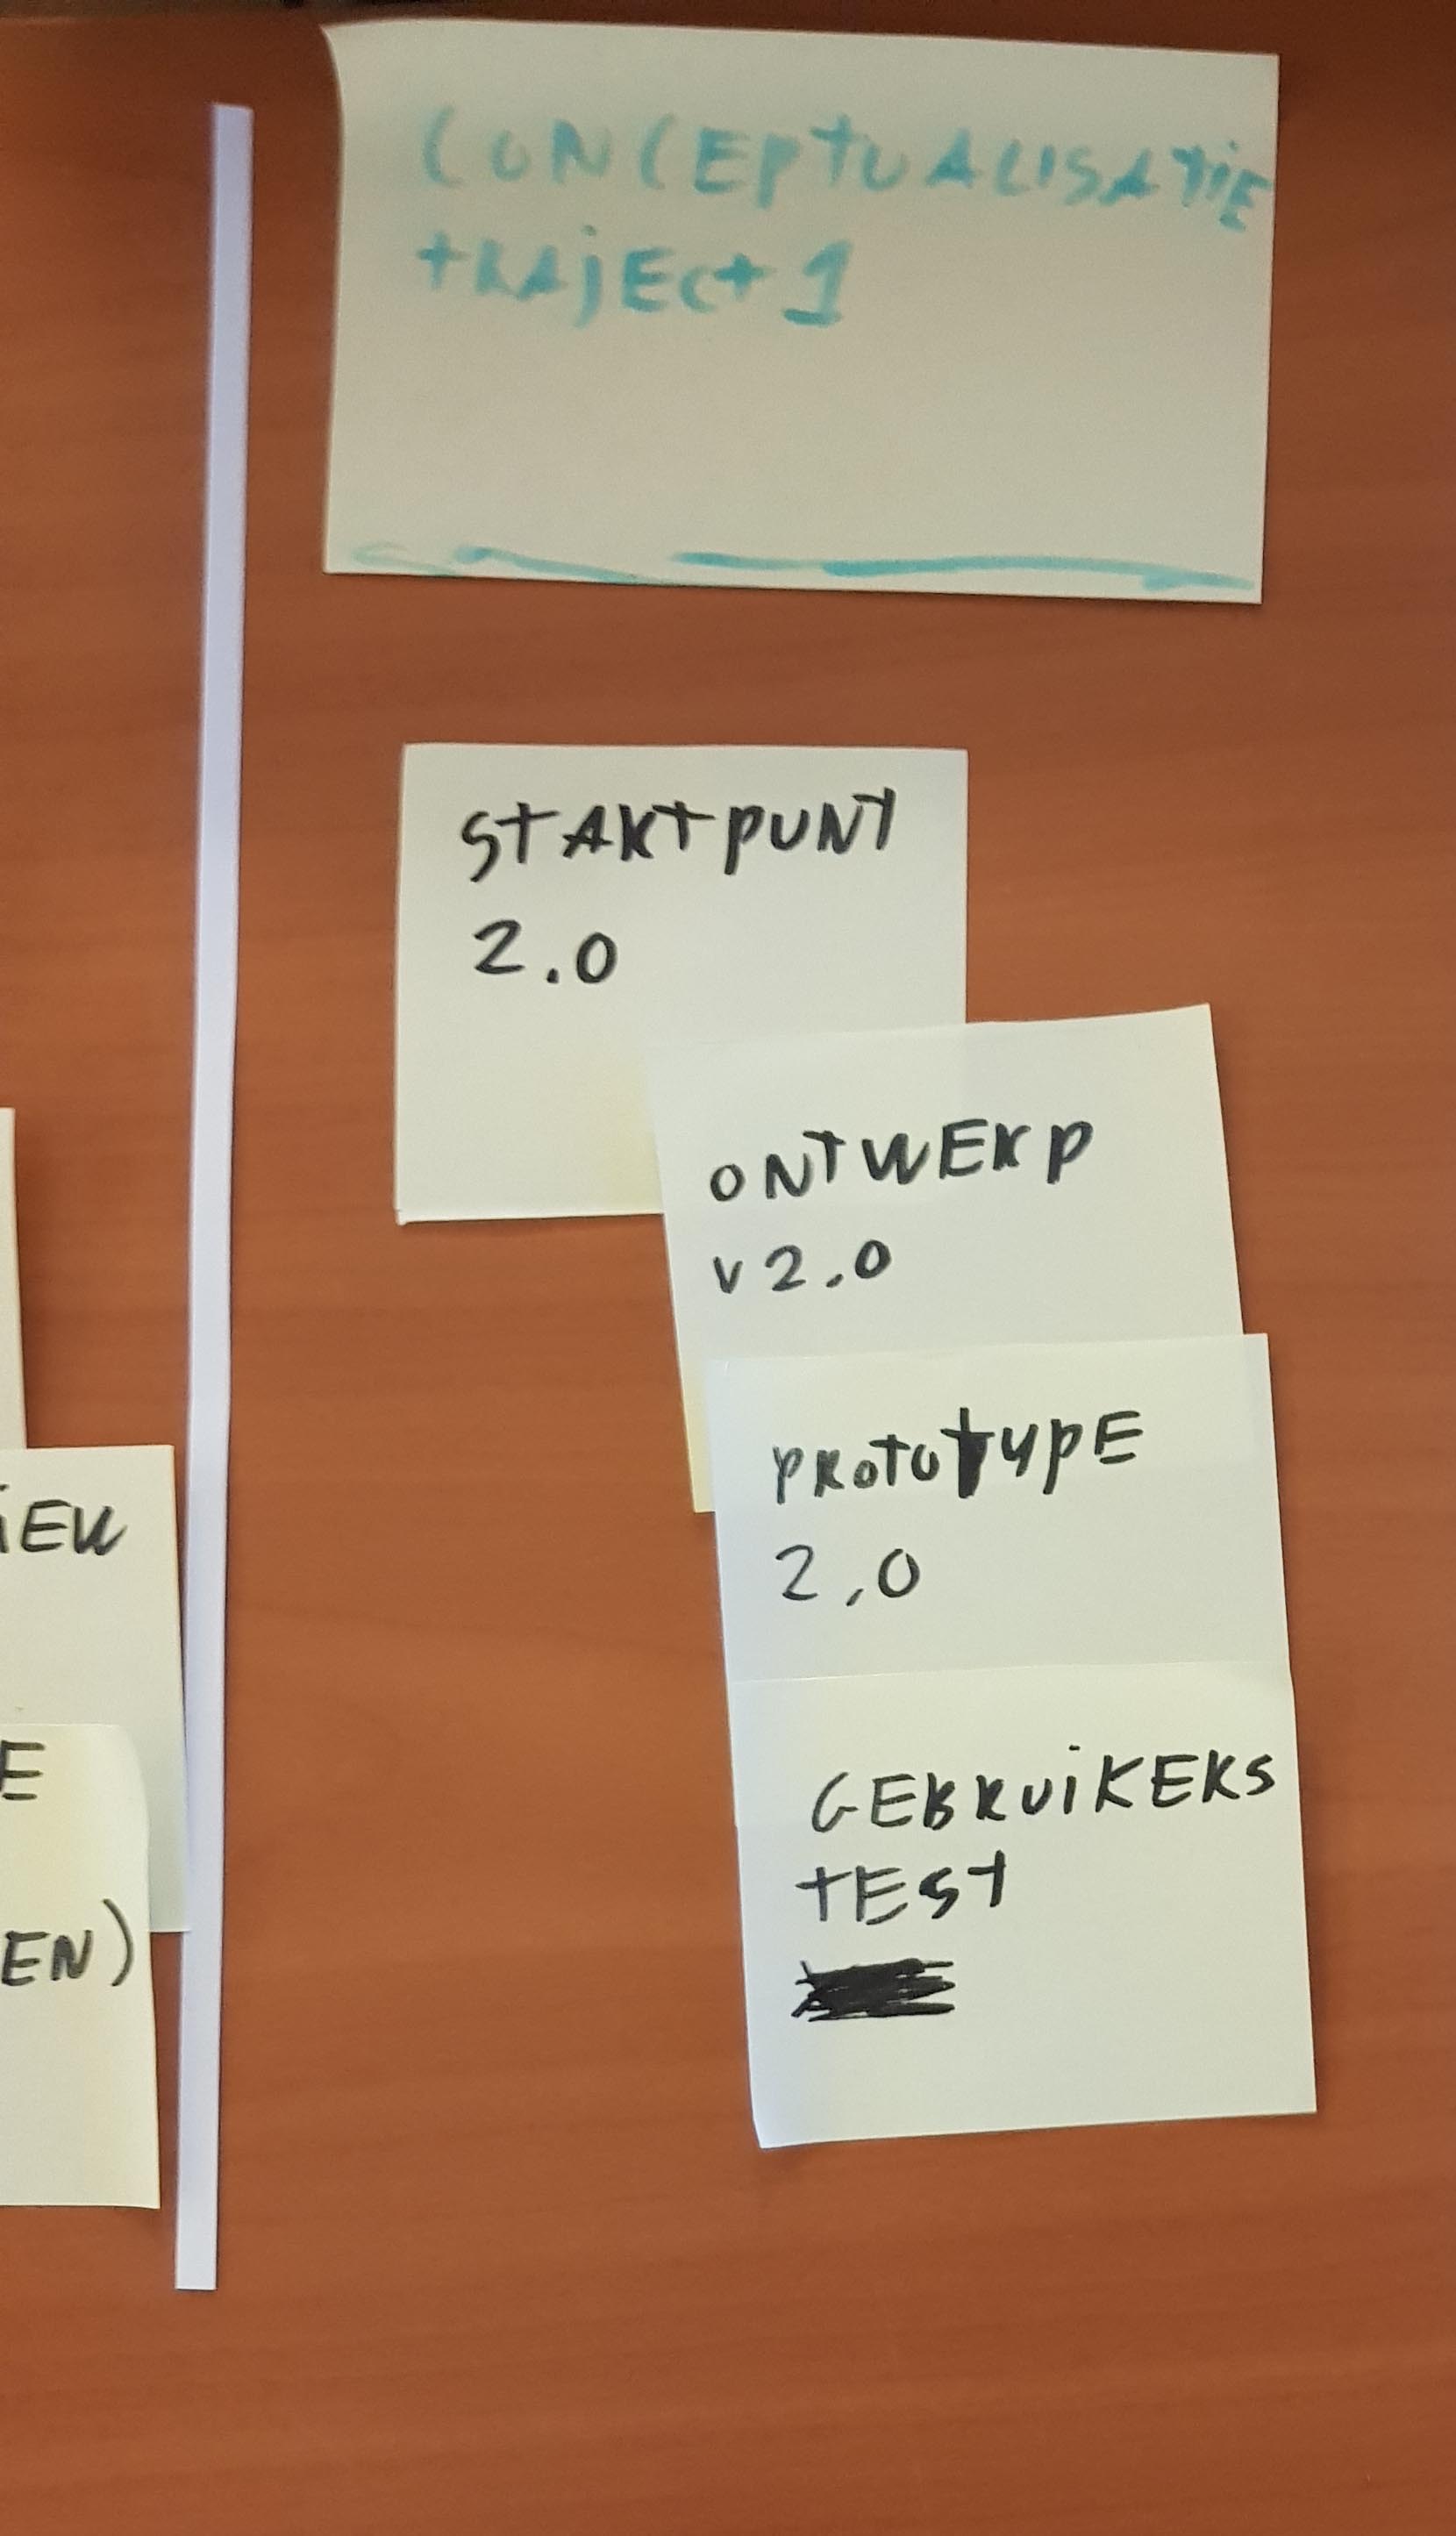 CONCEPTUALISATIE
TRAJECT 1
STARTPUNT
2.0
ONTWERP
V2.0
PROTOTYPE
2,0
GEBRUIKERS
TEST
E
EN)